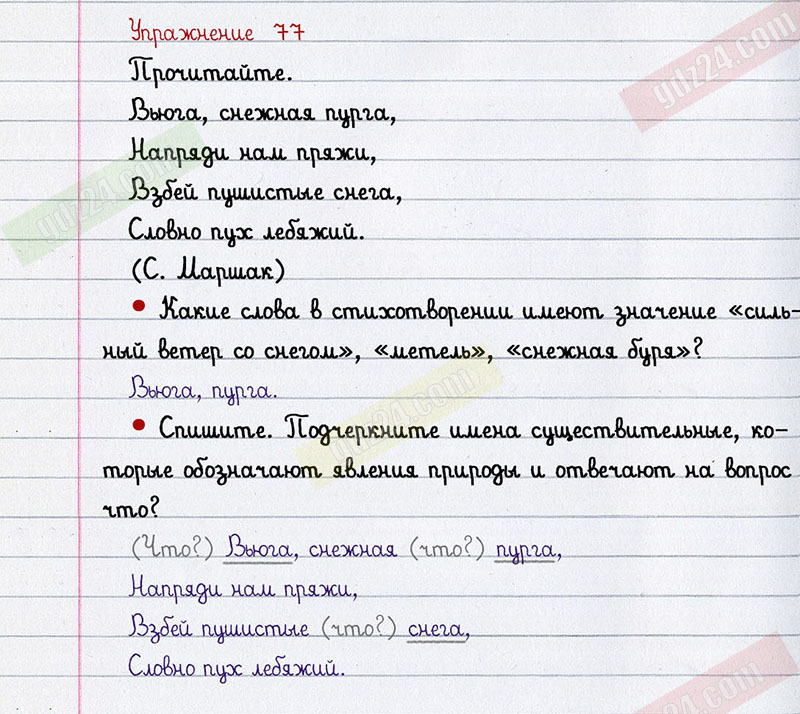 Упражнение 77
Прочитайте.
Вьюга, снежная пурга,
Напряди нам пряжи,
Взбей пушистые снега,
Словно пух лебяжий.
(С. Маршак)
• Какие слова в стихотворении имеют значение «силь-
ный ветер со снегом», «метель», «снежная буря»?
Вьюга, пурга.
• Спишите. Подчеркните имена существительные, ко-
торые обозначают явления природы и отвечают на вопрос
что?
(Что?) Вьюга, снежная (что?) пурга,
Напряди нам пряжи,
Взбей пушистые (что?) снега,
Словно пух лебяжий.
gdz24.com
gdz24.com
gdz24.com
gdz24.com